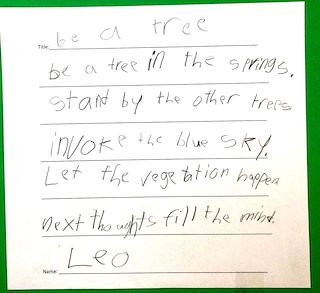 Title: be a tree
be a tree in the springs.
stand by the other trees
invoke the blue sky.
Let the vegetation happen
next thoughts fill the mind.
Name: Leo